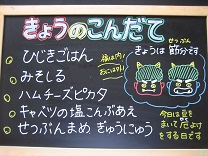 きょうのこんだて
ひじきごはん
みそしる
ハムチーズピカタ
キャベツの塩こんぶあえ
せつぶんまめ ぎゅうにゅう
福は内!
おにはそと!
せつぶん
きょうは節分です
今日は豆を
まいて だよけ
をする日です